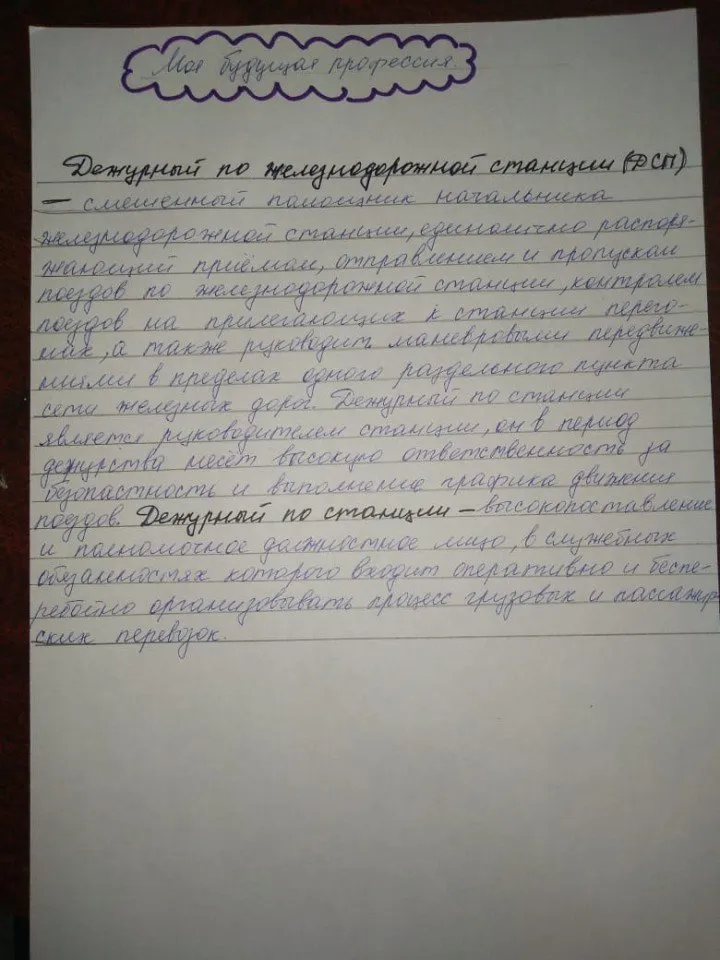 Моя будущая профессия.
Дежурный по железнодорожной станции (ДСП)
– сменный помощник начальника
железнодорожной станции, единолично распоря-
жающий приёмом, отправлением и пропуском
поездов по железнодорожной станции, контролем
поездов на прилегающих к станции перего-
нах, а также руководит маневровыми передвиже-
ниями в пределах одного раздельного пункта
сети железных дорог. Дежурный по станции
является руководителем станции, он в период
дежурства несёт высокую ответственность за
безопастность и выполнение графика движения
поездов. Дежурный по станции – высокопоставление
и полномочное должностное лицо, в служебных
обязанностях которого входит оперативно и беспе-
ребойно организовывать процесс грузовых и пассажир-
ских перевозок.